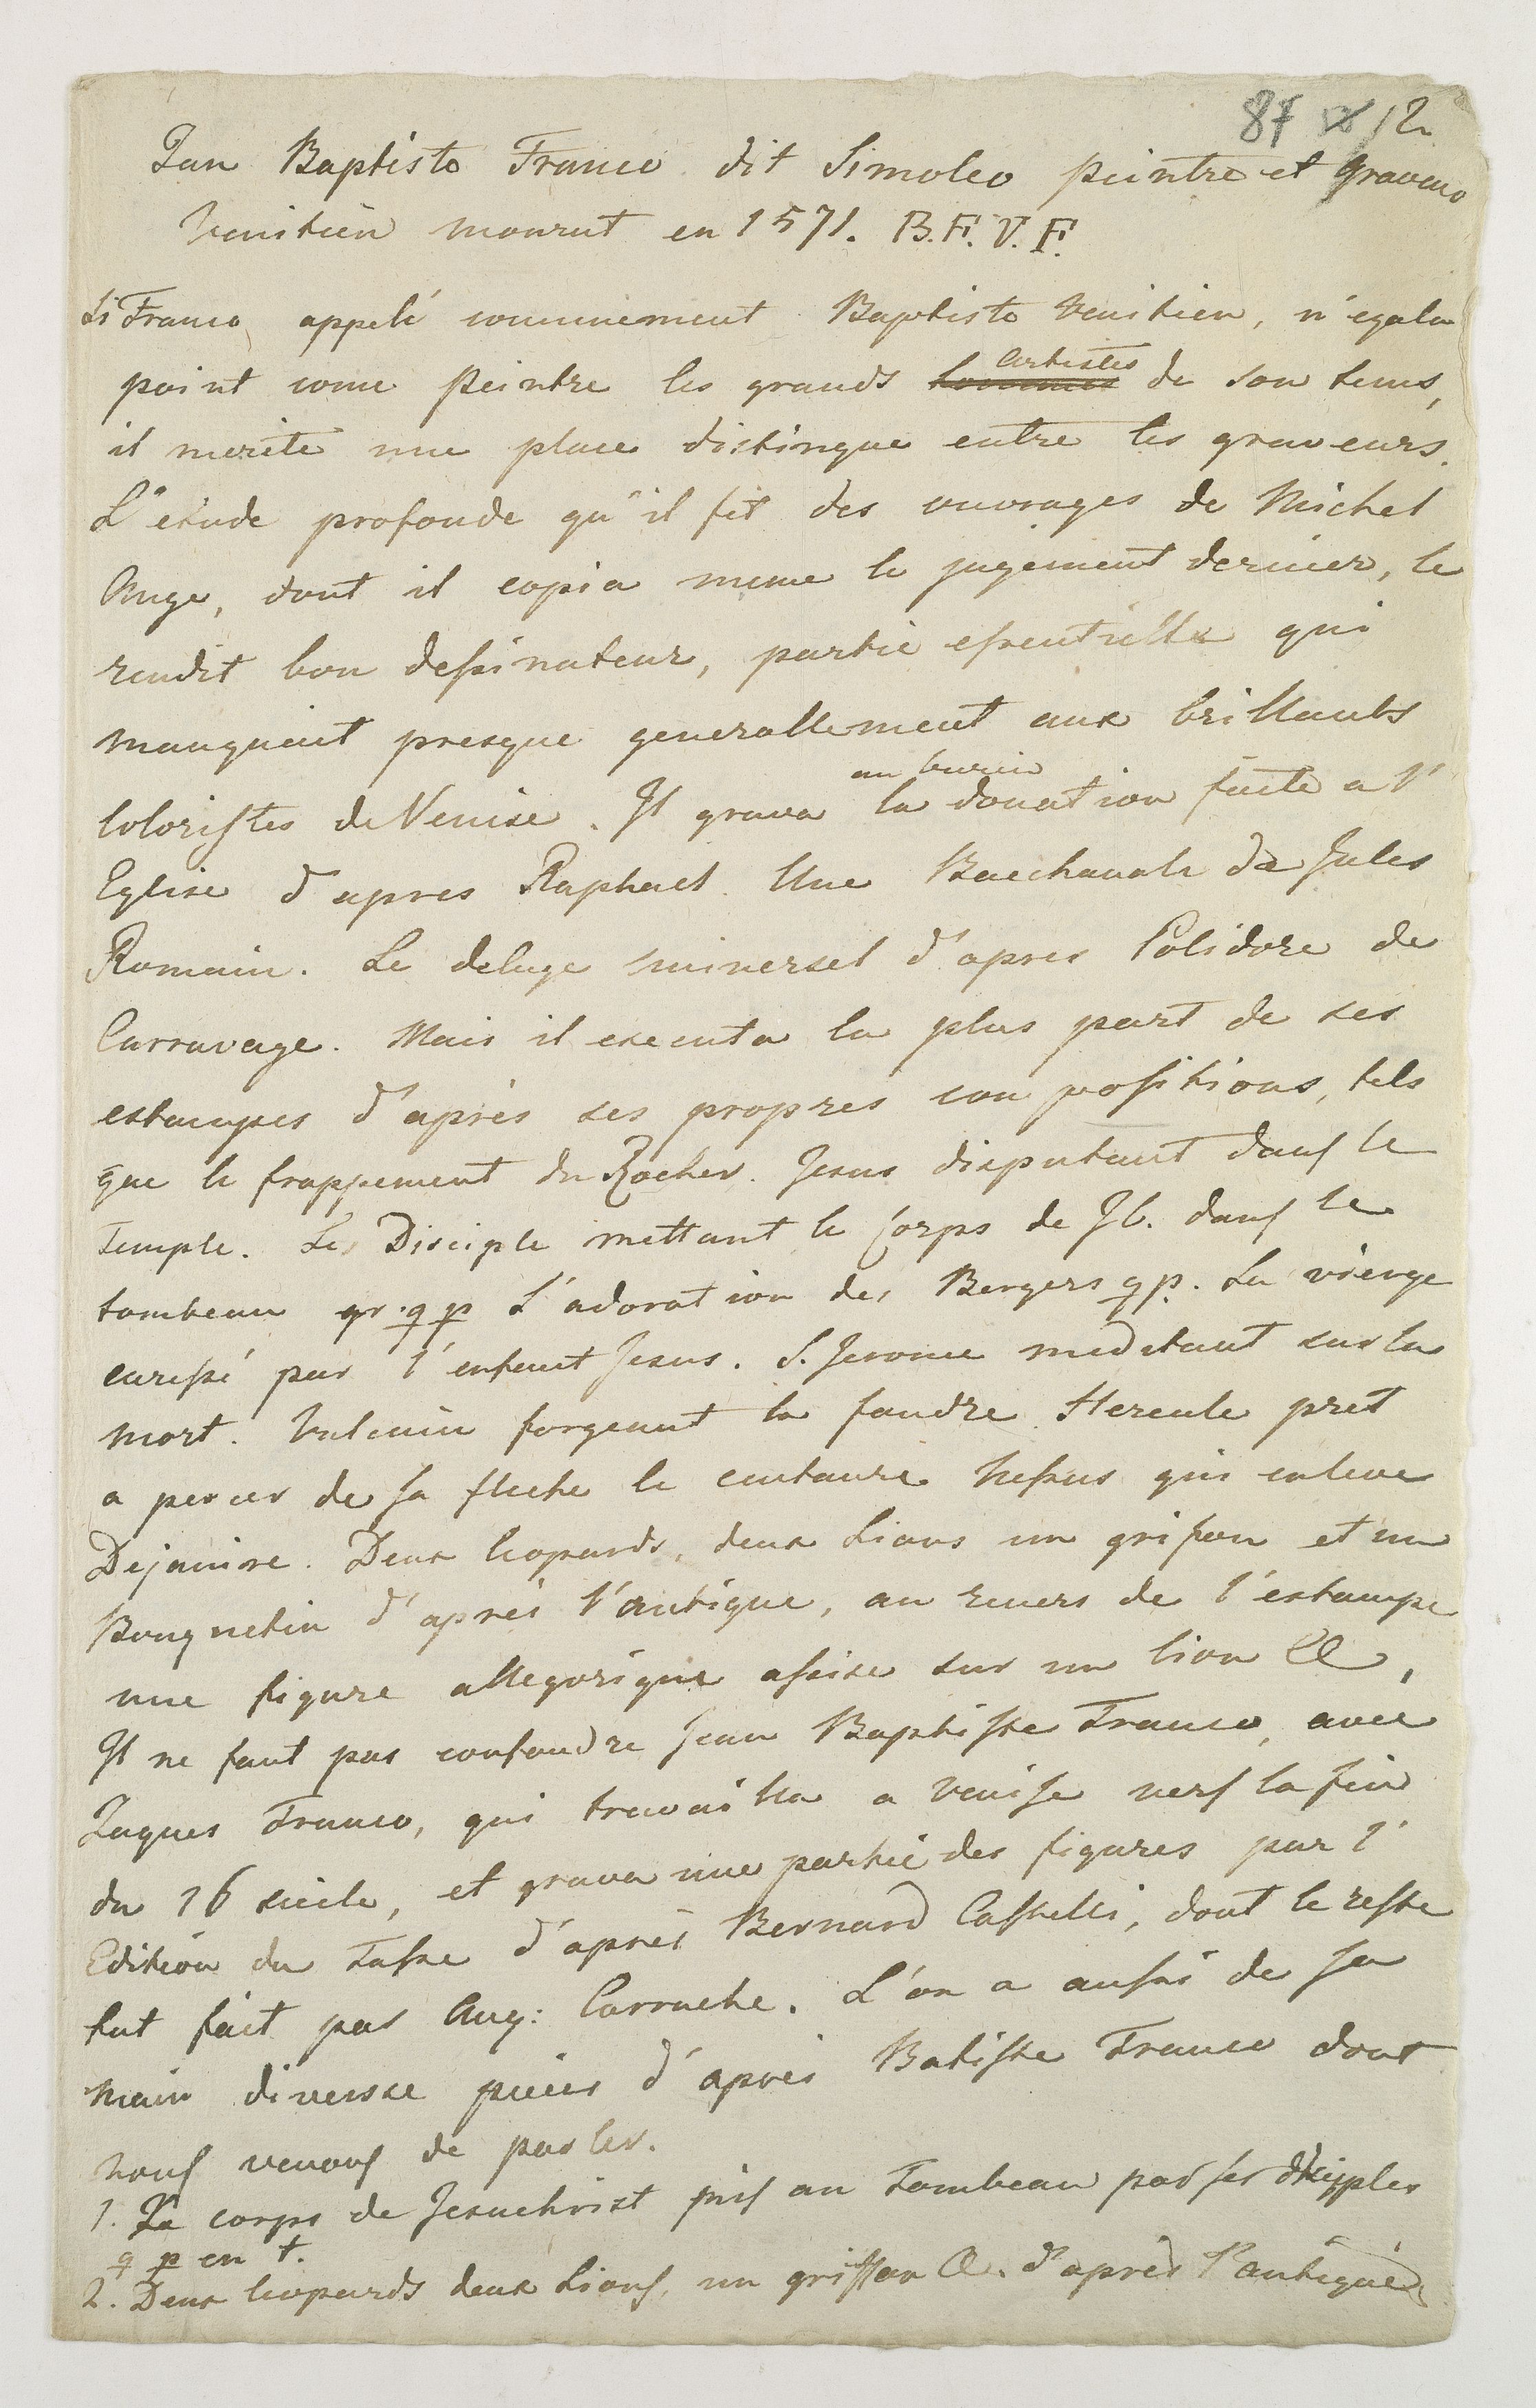 87 12
Jan Baptiste Franco dit Simoleo peintre et graveur
Venitien mourut en 1571. B.F.V.F.
Si Franco appelé communement Baptiste Venitien, n'egala
point come peintre les grands artistes de son tems,
il merite une place distingue entre les graveurs.
L'etude profonde qu'il fit des ouvrages de Michel
Ange, dont il copia meme le jugement dernier, le
rendit bon deſsinateur, partie eſsentielle qui
manquait presque generallement aux brillants
Coloriſtes de Venise. Il grava au burin la donation faite a l'
Eglise d'apres Raphael. Une Bacchanale de Jules
Romain. Le deluge universel d'apres Polidore de
Carravage. Mais il executa la plus part de ses
estampes d'après ses propres compoſitions, tels
que le frappement du Rocher. Jesus disputant danſ le
Temple. Les Disciple mettant le Corps de JC. danſ le
tombeau gr. q p L'adoration des Bergers q p. La vierge
careſsé par l'enfant Jesus. S. Jerome meditant sur la
mort. Vulcain forgeant la foudre. Hercule pret
a percer de ſa fleche le centaure Neſsus qui enleve
Dejanire. Deux leopards, deux Lions un grifon et un
Bouquetin d'après l'antique, au revers de l'estampe
une figure allegorique aſsise sur un lion &,
Il ne faut pas confondre Jean Baptiſte Franco, avec
Jaques Franco, qui travailla a Veniſe verſ la fin
du 16 siecle, et grava une partie des figures pur l'
Edition du Taſse d'après Bernard Caſtelli, dont le reſte
fut fait par Aug: Carrache. L'on a auſsi de ſa
main diversse pieces d'après Batiſte Franco dont
nouſ venonſ de parler.
1. Le corps de Jesuchrist miſ au Tombeau par ſes disciples
q p en t.
2. Deux leopards deux Lionſ, un griffon &. d'après l'antique